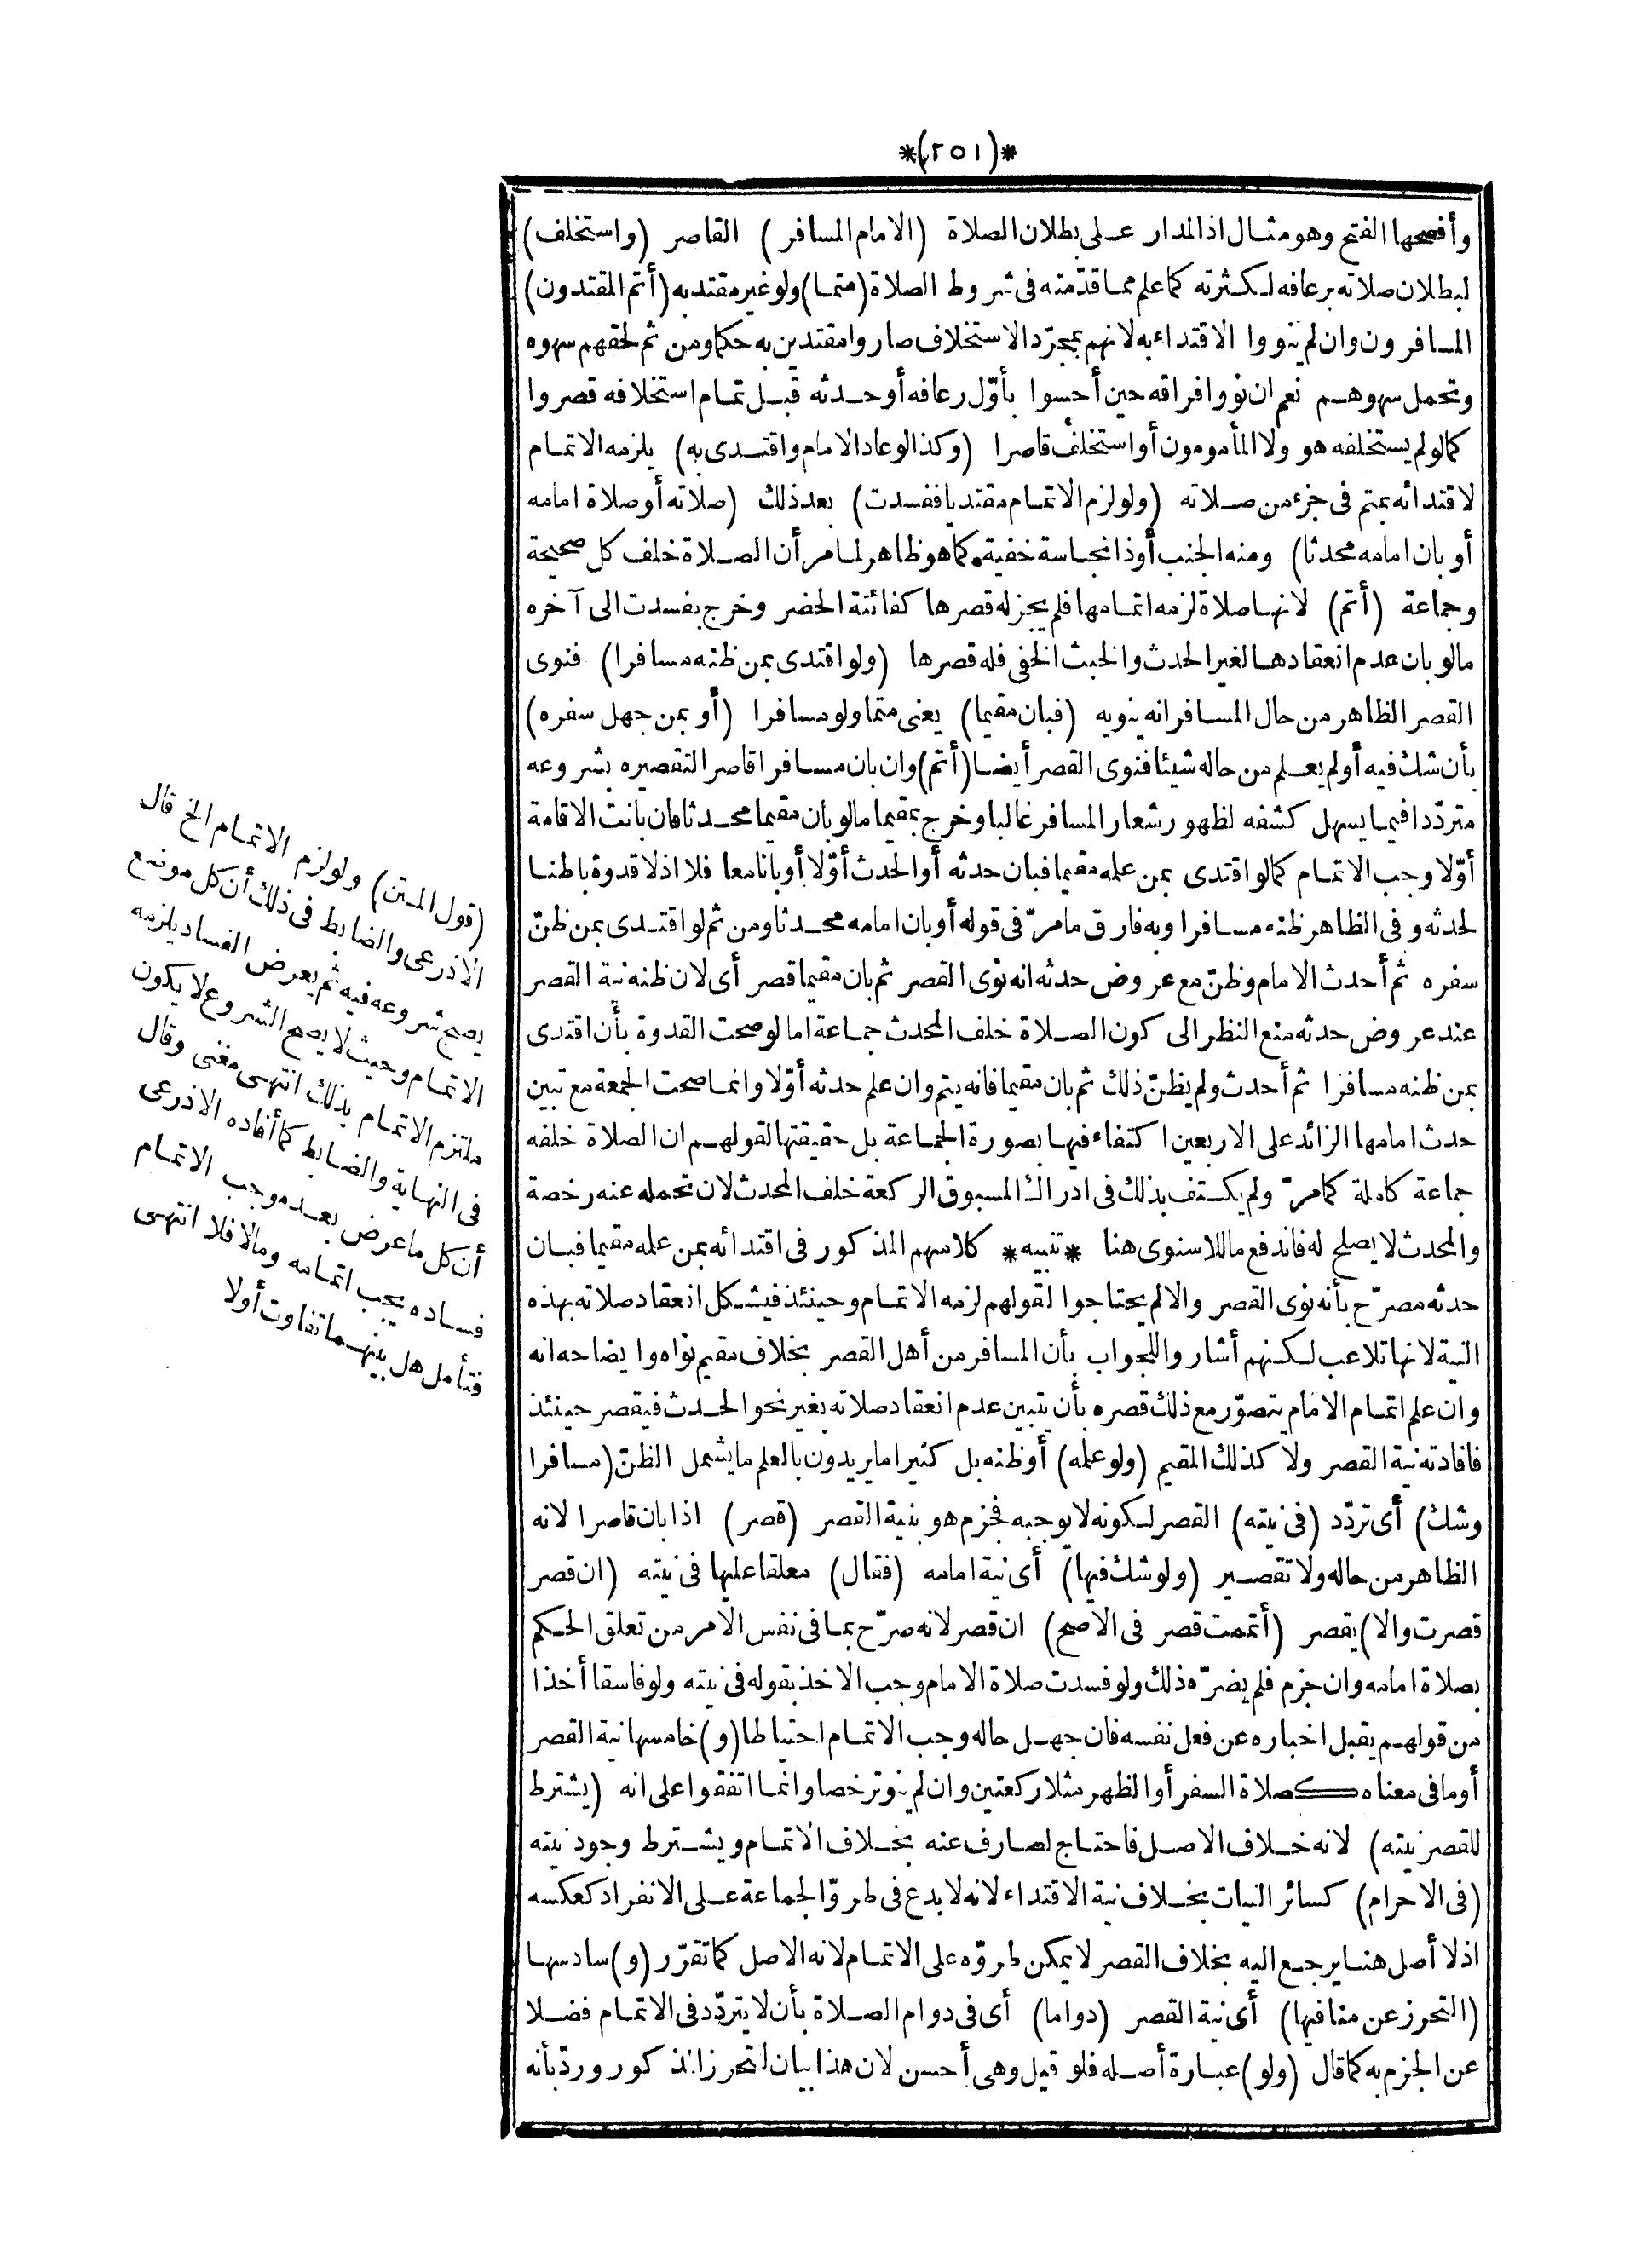 *(٢٥١)*
وأفصحها الفتح وهو مثال اذ المدار على بطلان الصلاة (الامام المسافر) القاصر (واستخلف)
لبطلان صلاته برعافه لكثرته كما علم مما قدّمته فى شروط الصلاة (متما) ولو غير مقتد به (أتم المقتدون)
المسافرون وان لم ينووا الاقتداء به لانهم بمجرّد الاستخلاف صاروا مقتدين به حكما ومن ثم لحقهم سهوه
وتحمل سهوهم نعم ان نووا فراقه حين أحسوا بأوّل رعافه أو حدثه قبل تمام استخلافه قصروا
كما لو لم يستخلفه هو ولا المأمومون أو استخلف قاصرا (وكذا لو عاد الامام واقتدى به) يلزمه الاتمام
لاقتدائه بمتم فى جزء من صلاته (ولو لزم الاتمام مقتديا ففسدت) بعد ذلك (صلاته أو صلاة امامه
أو بان امامه محدثا) ومنه الجنب أو ذا نجاسة خفية كما هو ظاهر لما مر أن الصلاة خلف كل صحيحة
وجماعة (أتم) لانها صلاة لزمه اتمامها فلم يجز له قصرها كفائتة الحضر وخرج بفسدت الى آخره
ما لو بان عدم انعقادها لغير الحدث والخبث الخفى فله قصرها (ولو اقتدى بمن ظنه مسافرا) فنوى
القصر الظاهر من حال المسافر انه ينويه (فبان مقيما) يعنى متما ولو مسافرا (أو بمن جهل سفره)
بأن شك فيه أو لم يعلم من حاله شيئا فنوى القصر أيضا (أتم) وان بان مسافرا قاصرا لتقصيره بشروعه
متردّدا فيما يسهل كشفه لظهور شعار المسافر غالبا وخرج بمقيما ما لو بان مقيما محدثا فان بانت الاقامة
أوّلا وجب الاتمام كما لو اقتدى بمن علمه مقيما فبان حدثه أو الحدث أوّلا أو بانا معا فلا اذ لا قدوة باطنا
لحدثه وفى الظاهر ظنه مسافرا وبه فارق ما مرّ فى قوله أو بان امامه محدثا ومن ثم لو اقتدى بمن ظنّ
سفره ثم أحدث الامام وظنّ مع عروض حدثه انه نوى القصر ثم بان مقيما قصر أى لان ظنه نية القصر
عند عروض حدثه منع النظر الى كون الصلاة خلف المحدث جماعة اما لو صحت القدوة بأن اقتدى
بمن ظنه مسافرا ثم أحدث ولم يظنّ ذلك ثم بان مقيما فانه يتم وان علم حدثه أوّلا وانما صحت الجمعة مع تبين
حدث امامها الزائد على الاربعين اكتفاء فيها بصورة الجماعة بل حقيقتها لقولهم ان الصلاة خلفه
جماعة كاملة كما مرّ ولم يكتف بذلك فى ادراك المسبوق الركعة خلف المحدث لان تحمله عنه رخصة
والمحدث لا يصلح له فاندفع ما للاسنوى هنا *تنبيه* كلامهم المذكور فى اقتدائه بمن علمه مقيما فبان
حدثه مصرّح بأنه نوى القصر والا لم يحتاجوا لقولهم لزمه الاتمام وحينئذ فيشكل انعقاد صلاته بهذه
النية لانها تلاعب لكنهم أشاروا للجواب بأن المسافر من أهل القصر بخلاف مقيم نواه وايضاحه انه
وان علم اتمام الامام يتصوّر مع ذلك قصره بأن يتبين عدم انعقاد صلاته بغير نحو الحدث فيقصر حينئذ
فافادته نية القصر ولا كذلك المقيم (ولو علمه) أو ظنه بل كثيرا ما يريدون بالعلم ما يشمل الظنّ (مسافرا
وشك) أى تردّد (فى نيته) القصر لكونه لا يوجبه فجزم هو بنية القصر (قصر) اذا بان قاصرا لانه
الظاهر من حاله ولا تقصير (ولو شك فيها) أى نية امامه (فقال) معلقا عليها فى نيته (ان قصر
قصرت والا) يقصر (أتممت قصر فى الاصح) ان قصر لانه صرّح بما فى نفس الامر من تعلق الحكم
بصلاة امامه وان جزم فلم يضرّه ذلك ولو فسدت صلاة الامام وجب الاخذ بقوله فى نيته ولو فاسقا أخذا
من قولهم يقبل اخباره عن فعل نفسه فان جهل حاله وجب الاتمام احتياطا (و) خامسها نية القصر
أو ما فى معناه كصلاة السفر أو الظهر مثلا ركعتين وان لم ينو ترخصا وانما اتفقوا على انه (يشترط
للقصر نيته) لانه خلاف الاصل فاحتاج لصارف عنه بخلاف الاتمام ويشترط وجود نيته
(فى الاحرام) كسائر النيات بخلاف نية الاقتداء لانه لا بدع فى طروّ الجماعة على الانفراد كعكسه
اذ لا أصل هنا يرجع اليه بخلاف القصر لا يمكن طروّه على الاتمام لانه الاصل كما تقرّر (و) سادسها
(التحرز عن منافيها) أى نية القصر (دواما) أى فى دوام الصلاة بأن لا يتردّد فى الاتمام فضلا
عن الجزم به كما قال (ولو) عبارة أصله فلو قيل وهى أحسن لان هذا بيان لتحرز المذكور وردّ بأنه
(قول المتن) ولو لزم الاتمام الخ قال
الاذرعى والضابط فى ذلك أن كل موضع
يصح شروعه فيه ثم يعرض الفساد يلزمه
الاتمام وحيث لا يصح الشروع لا يكون
ملتزم الاتمام بذلك انتهى مغنى وقال
فى النهاية والضابط كما أفاده الاذرعى
أن كل ما عرض بعد موجب الاتمام
فساده يجب اتمامه وما لا فلا انتهى
فتأمل هل بينهما تفاوت أو لا